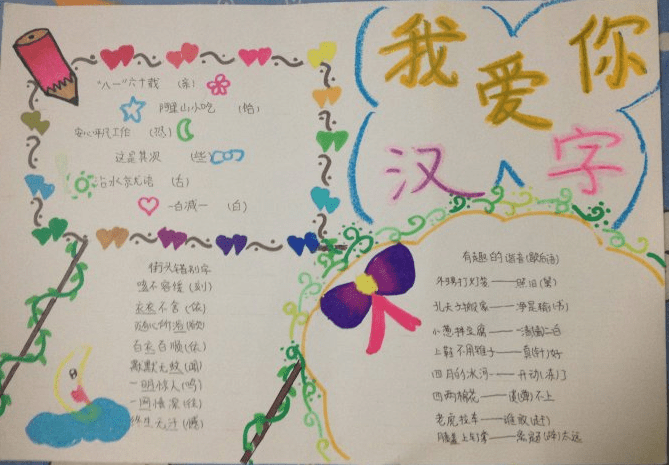 我爱你
汉字
"八一"六十载 (亲)
阿里山小吃
安心 工作 (恐)
这是其次 (些)
(舌)
一百减一 (白)
街头错别字
嗑不容缓 (刻)
衣衣不舍 (依)
随心所浴 (欲)
百衣百顺 (依)
默默无蚊 (闻)
一明惊人 (鸣)
一网情深 (往)
有趣的谐音(歇后语)
外甥打灯笼——照旧(舅)
孔夫子搬家——净是输(书)
小葱拌豆腐——一清(青)二白
上鞋不用锥子——真(针)好
四月的冰河——开动(冻)了
四两棉花——谈(弹)不上
老虎拉车——谁敢(赶)
膝盖上钉掌—— 太远